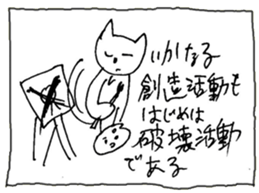 いかなる
創造活動も
はじめは
破壊活動
である